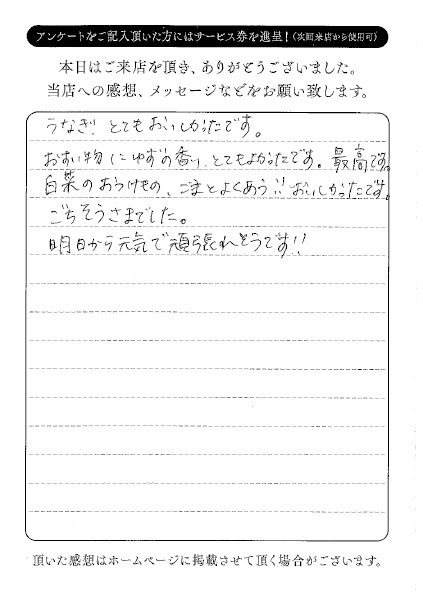 アンケートをご記入頂いた方にはサービス券を進呈！(次回来店から使用可)
本日はご来店を頂き、ありがとうございました。
当店への感想、メッセージなどをお願い致します。
うなぎ！とてもおいしかったです。
おすい物にゆずの香り、とてもよかったです。最高です。
白菜のおつけもの、ごまとよくあう!!おいしかったです。
ごちそうさまでした。
明日から元気で頑張れそうです!!
頂いた感想はホームページに掲載させて頂く場合がございます。